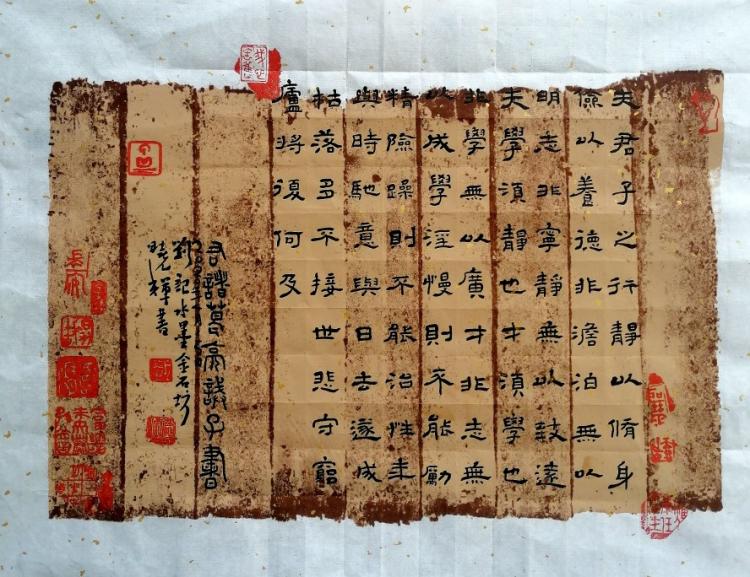 夫君子之行靜以脩身
儉以養德非澹泊無以
明志非寧靜無以致遠
夫學須靜也才須學也
非學無以廣才非志無
以成學淫慢則不能勵
精險躁則不能治性年
與時馳意與日去遂成
枯落多不接世悲守窮
廬將復何及
右諸葛亮誡子書
劉記水墨金石坊
曉輝書